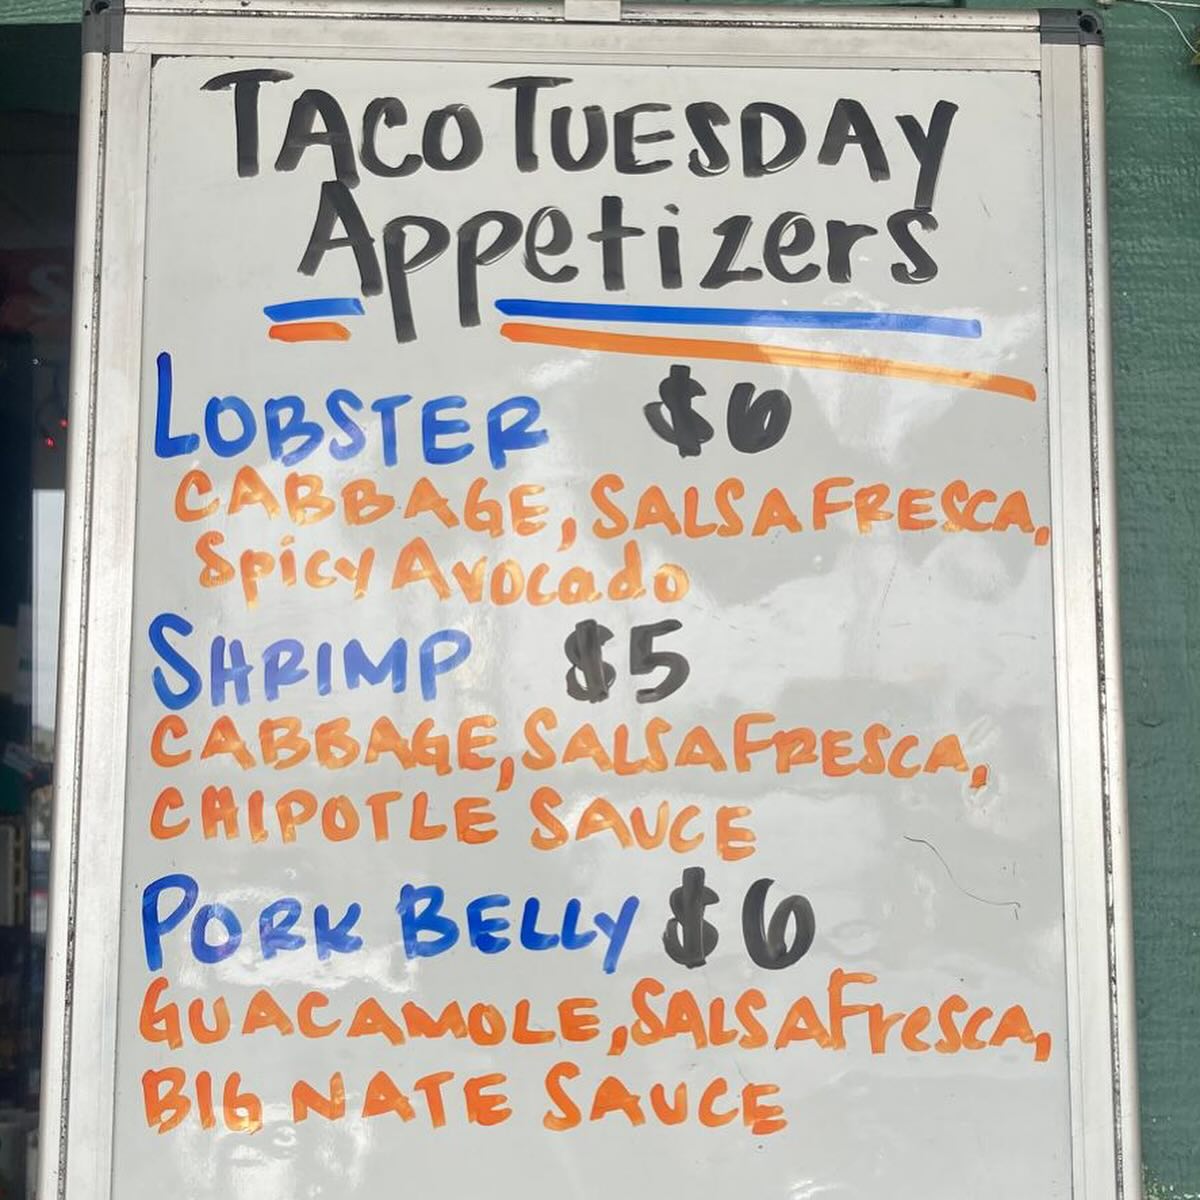 TACO TUESDAY
Appetizers
LOBSTER $6
CABBAGE, SALSA FRESCA,
Spicy Avocado
SHRIMP $5
CABBAGE, SALSA FRESCA,
CHIPOTLE SAUCE
PORK BELLY $6
GUACAMOLE, SALSA Fresca,
BIG NATE SAUCE